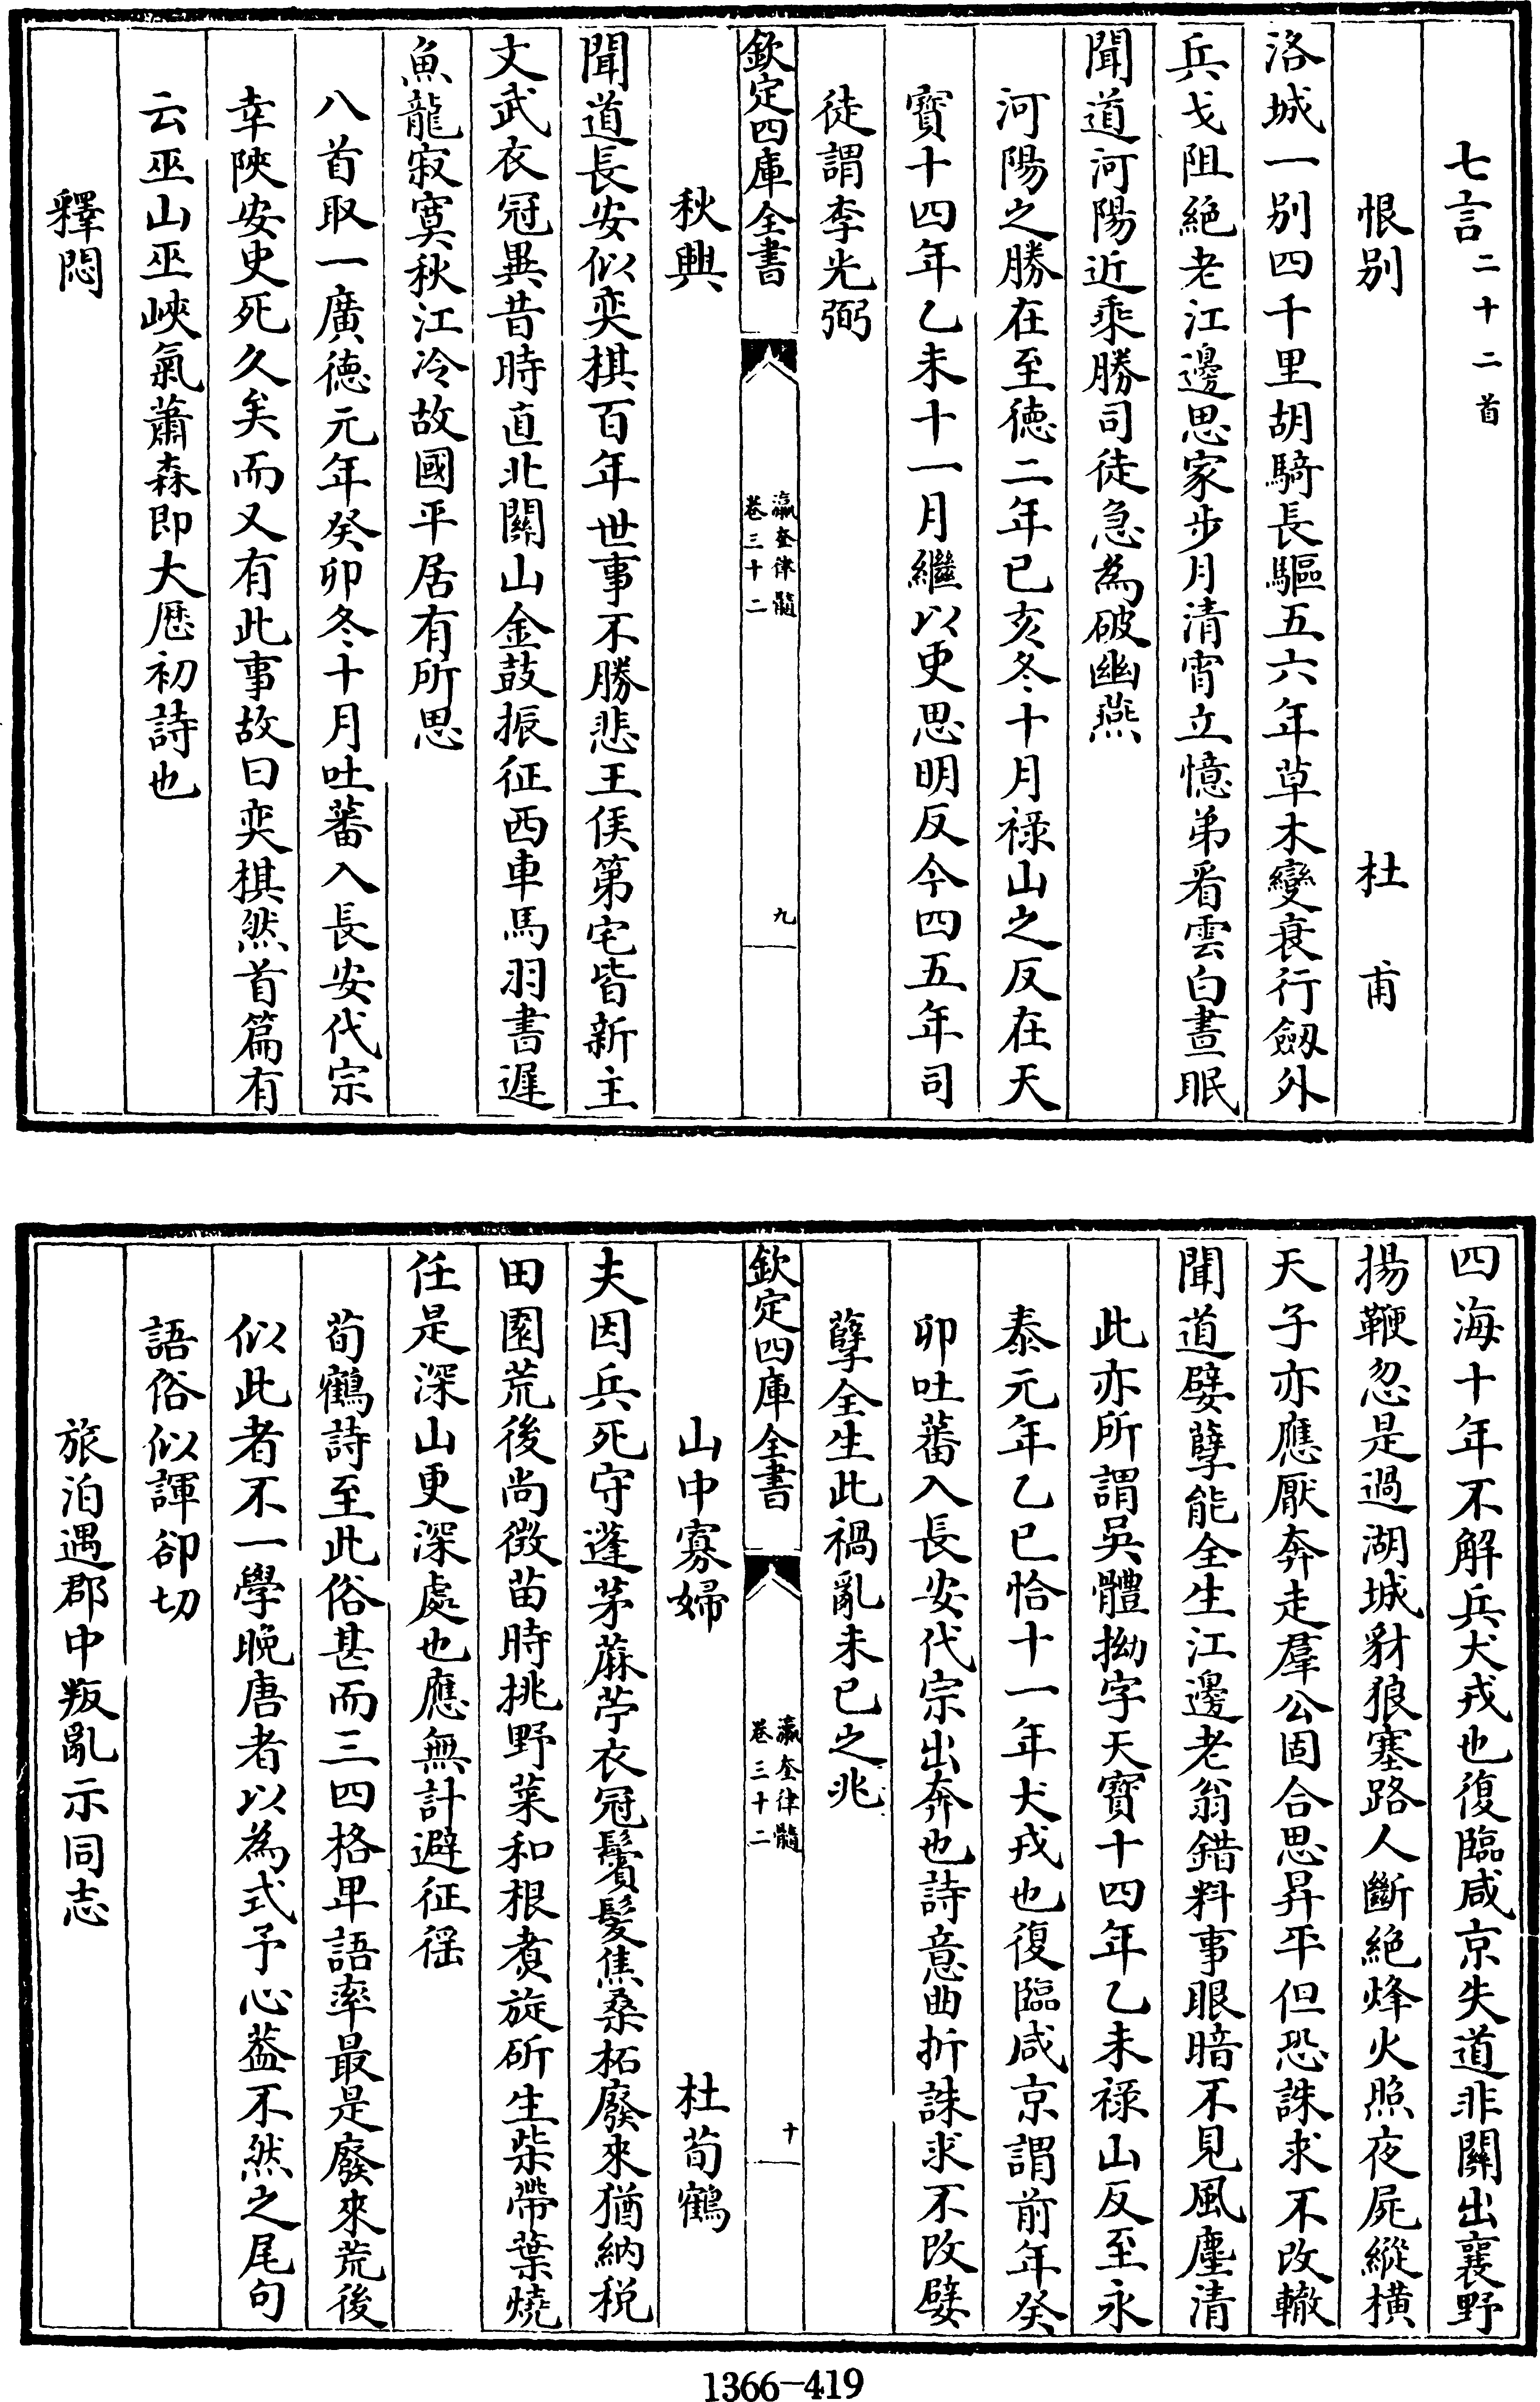 七言二十二首
恨别　杜甫
洛城一别四千里胡騎長驅五六年草木變衰行劒外
兵戈阻絶老江邊思家步月清宵立憶弟看雲白晝眠
聞道河陽近乘勝司徒急為破幽燕
河陽之勝在至徳二年已亥冬十月禄山之反在天
寳十四年乙未十一月繼以史思明反今四五年司
徒謂李光弼
欽定四庫全書
瀛奎律髓
卷三十二
九
秋興
聞道長安似奕棋百年世事不勝悲王侯第宅皆新主
文武衣冠異昔時直北關山金鼓振征西車馬羽書遲
魚龍寂寞秋江冷故國平居有所思
八首取一廣徳元年癸卯冬十月吐蕃入長安代宗
幸陜安史死久矣而又有此事故曰奕棋然首篇有
云巫山巫峽氣蕭森即大厯初詩也
釋悶
四海十年不解兵犬戎也復臨咸京失道非關出襄野
揚鞭忽是過湖城豺狼塞路人斷絶烽火照夜屍縱横
天子亦應厭奔走羣公固合思昇平但恐誅求不改轍
聞道嬖孽能全生江邊老翁錯料事眼暗不見風塵清
此亦所謂吳體拗字天寳十四年乙未禄山反至永
泰元年乙巳恰十一年犬戎也復臨咸京謂前年癸
卯吐蕃入長安代宗出奔也詩意曲折誅求不改嬖
孽全生此禍亂未已之兆
欽定四庫全書
瀛奎律髓
卷三十二
十
山中寡婦　杜荀鶴
夫因兵死守蓬茅蔴苧衣冠鬢髮焦桑柘廢來猶納税
田園荒後尚徴苗時挑野菜和根煑旋斫生柴帶葉燒
任是深山更深處也應無計避征徭
荀鶴詩至此俗甚而三四格卑語率最是廢來荒後
似此者不一學晚唐者以為式予心葢不然之尾句
語俗似諢卻切
旅泊遇郡中叛亂示同志
1366-419